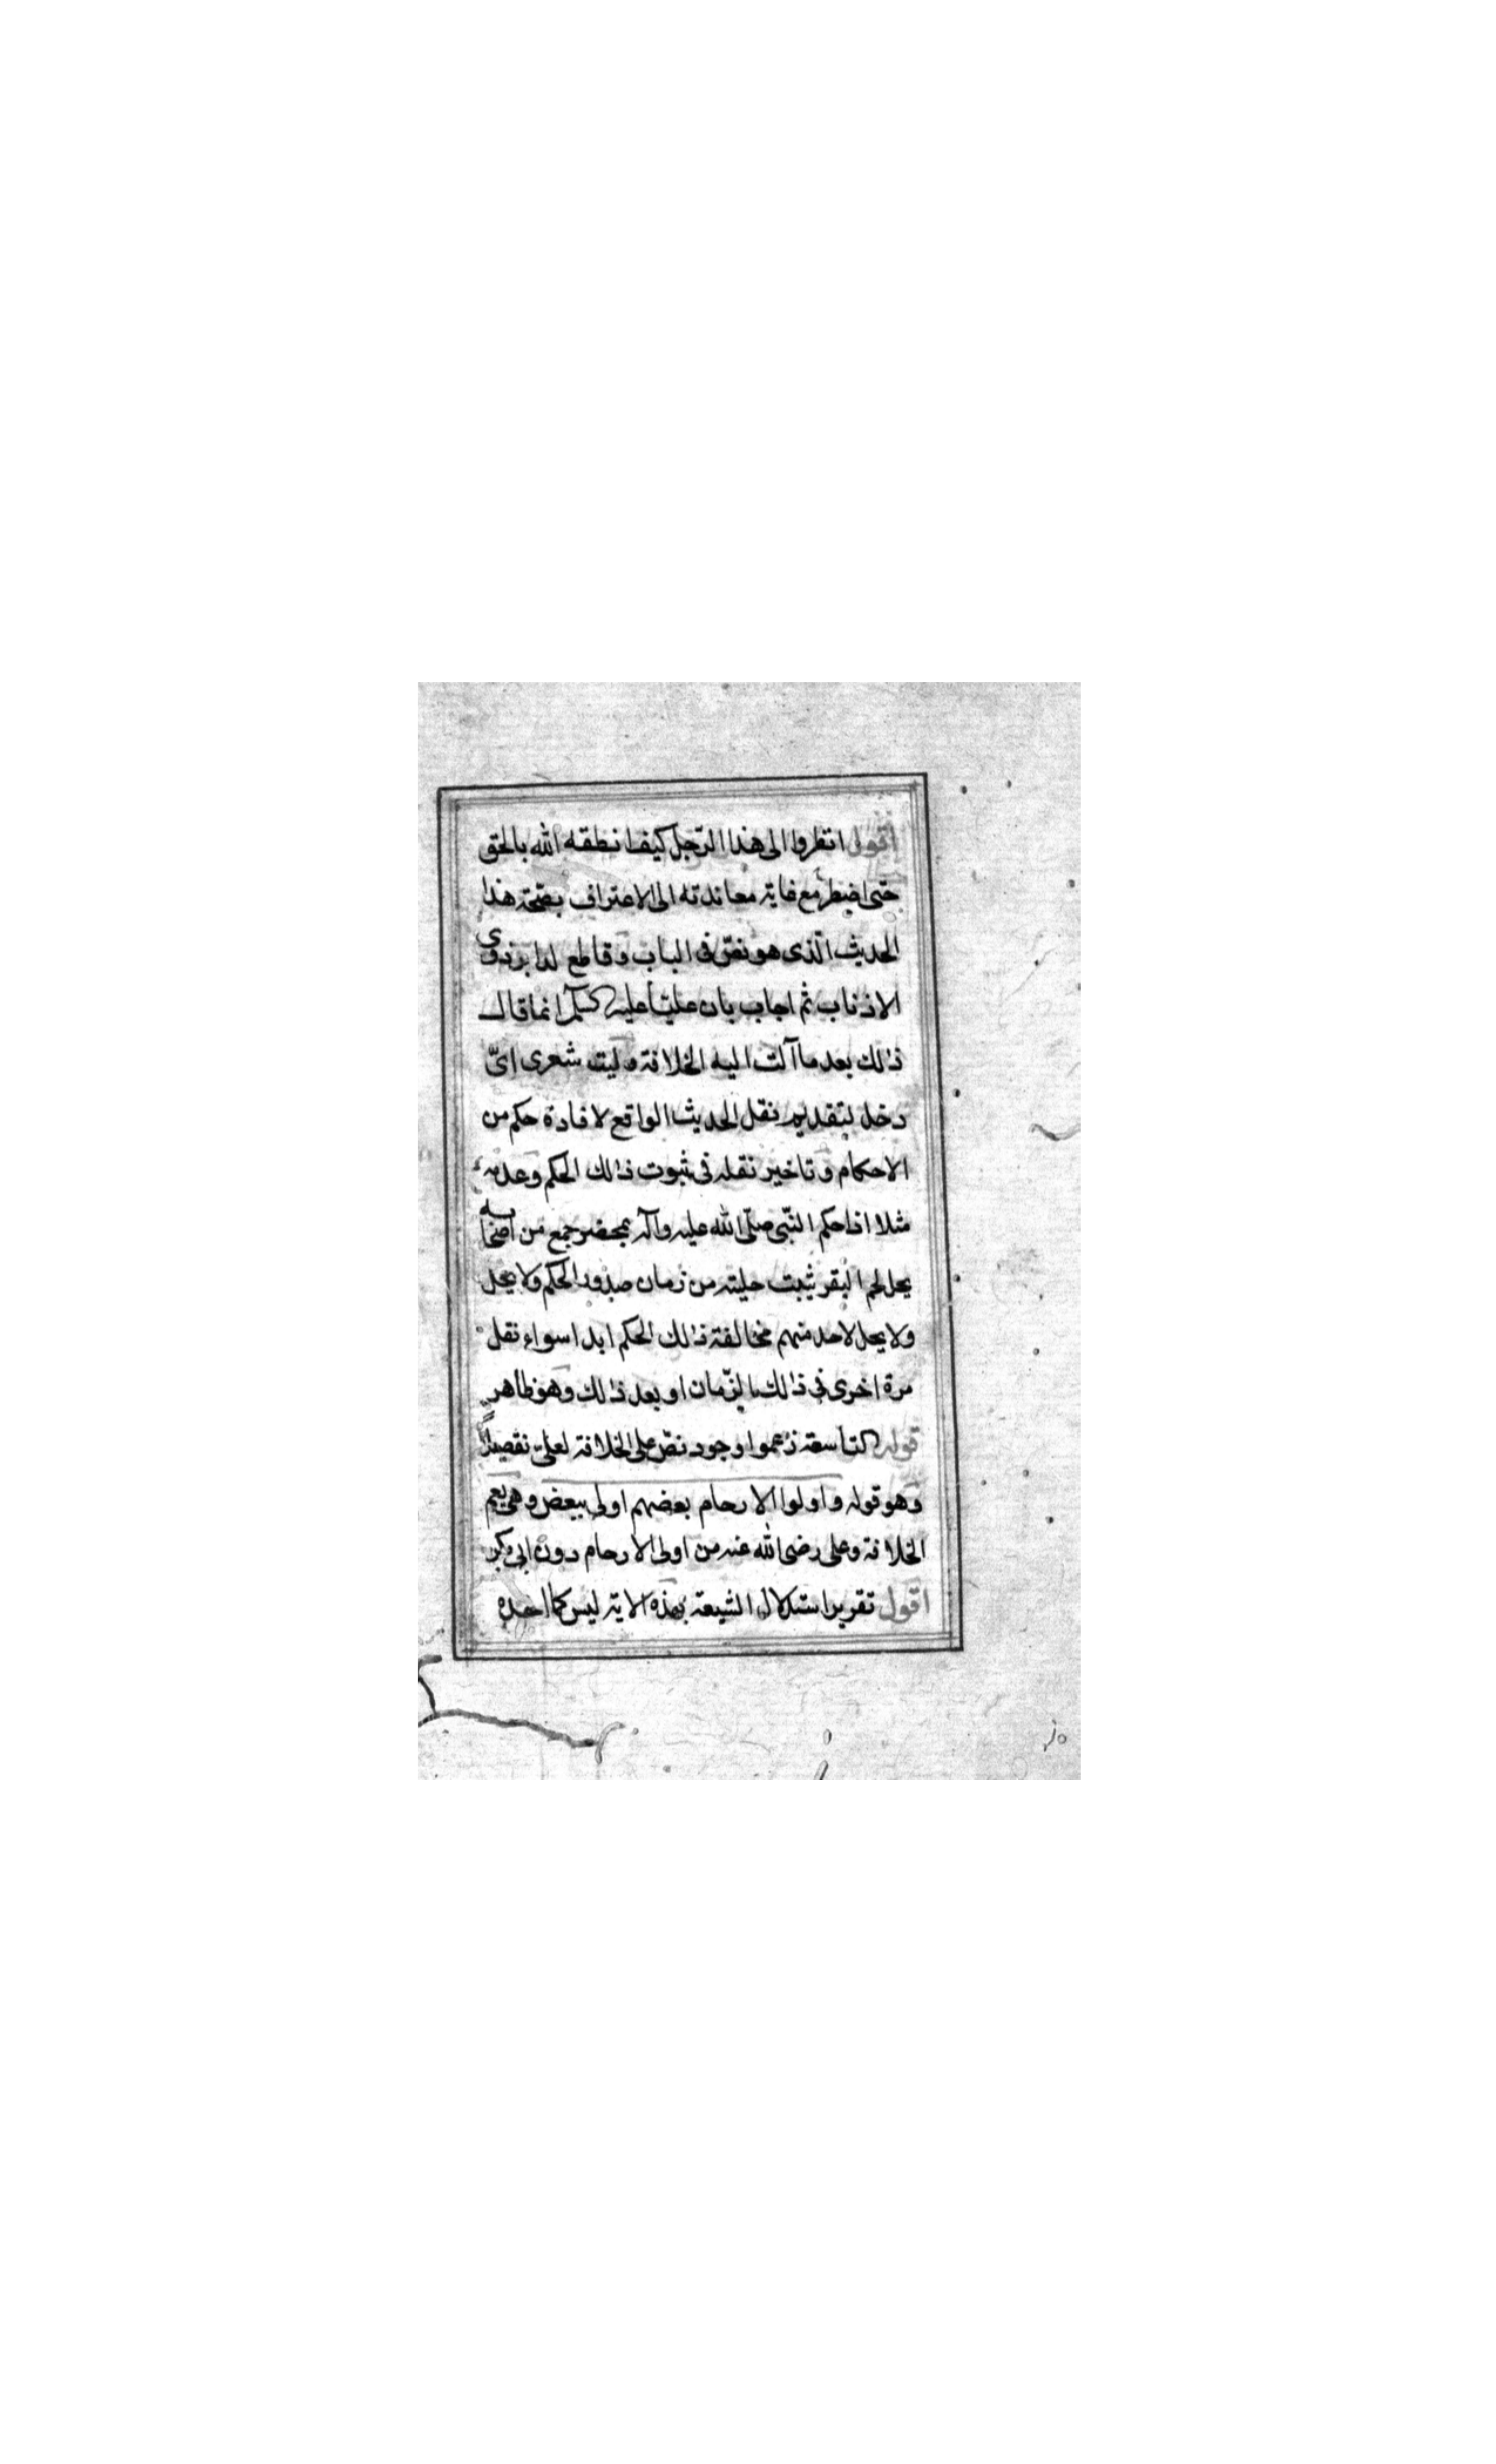 اقول انظروا الى هذا الرّجل كيف انطقه الله بالحق
حتى اضطر مع غاية معاندته الى الاعتراف بصحّة هذا
الحديث الّذى هو نصّ فى الباب وقاطع لدابر ذوى
الاذناب ثم اجاب بان عليّاً عليه السلم انما قال
ذلك بعد ما آلت اليه الخلافة وليت شعرى اىّ
دخل لتقديم نقل الحديث الواقع لافادة حكم من
الاحكام وتاخير نقله فى ثبوت ذلك الحكم وعدمه
مثلا اذا حكم النّبى صلّى الله عليه وآله بمحضر جمع من اصحابه
بحل لحم البقر ثبت حليته من زمان صدور الحكم ولا يحل
ولا يحل لاحد منهم مخالفة ذلك الحكم ابدا سواء نقل
مرة اخرى فى ذلك الزّمان او بعد ذلك وهو ظاهر
قوله التاسعة زعموا وجود نصّ على الخلافة لعلىّ تفصيلاً
وهو قوله واولوا الارحام بعضهم اولى ببعض وهى يعم
الخلافة وعلى رضى الله عنه من اولى الارحام دون ابى بكر
اقول تقرير استدلال الشيعة بهذه الاية ليس كما اخذه